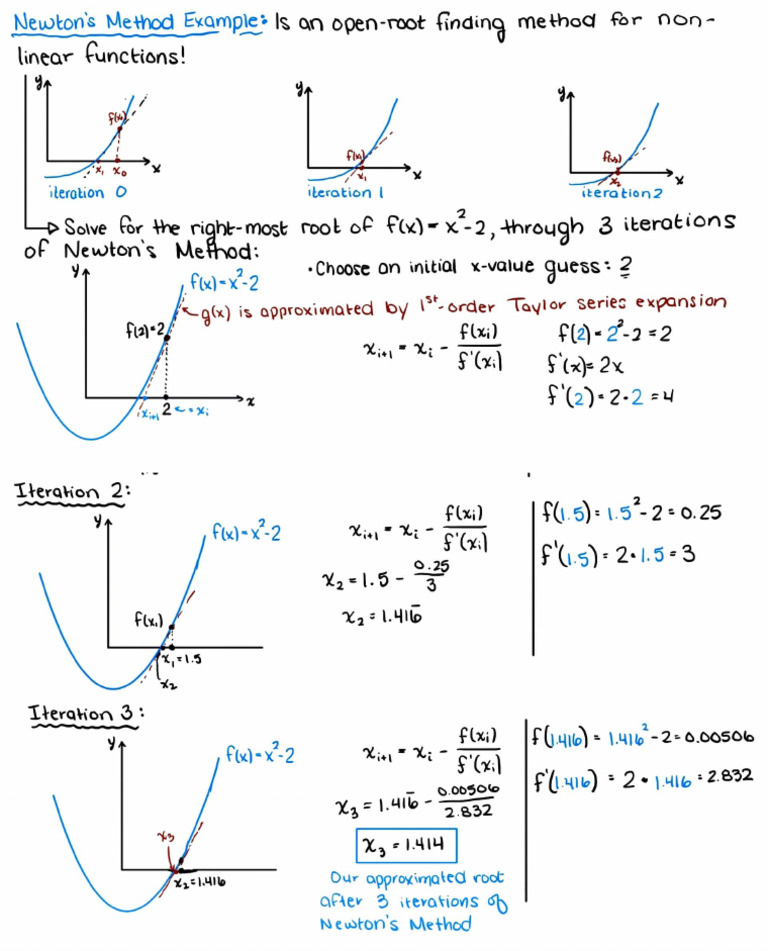 Newton's Method Example: Is an open-root finding method for non-
linear functions!
y
f(x₀)
x₁ x₀
x
iteration 0
y
f(x₁)
x₁
x
iteration 1
y
f(x₂)
x₂
x
iteration 2
Solve for the right-most root of f(x) = x²-2, through 3 iterations
of Newton's Method:
• Choose an initial x-value guess: 2
y
f(x) = x²-2
g(x) is approximated by 1st-order Taylor series expansion
f(2)=2
xᵢ₊₁ 2 ← • xᵢ
x
xᵢ₊₁ = xᵢ - f(xᵢ)/f'(xᵢ)
f(2) = 2²-2 = 2
f'(x) = 2x
f'(2) = 2·2 = 4
Iteration 2:
y
f(x) = x²-2
f(x₁)
x₁ = 1.5
x₂
xᵢ₊₁ = xᵢ - f(xᵢ)/f'(xᵢ)
x₂ = 1.5 - 0.25/3
x₂ = 1.416̅
f(1.5) = 1.5² - 2 = 0.25
f'(1.5) = 2 • 1.5 = 3
Iteration 3:
y
f(x) = x²-2
x₃
x₂ = 1.416
xᵢ₊₁ = xᵢ - f(xᵢ)/f'(xᵢ)
x₃ = 1.416̅ - 0.00506/2.832
x₃ = 1.414
Our approximated root
after 3 iterations of
Newton's Method
f(1.416) = 1.416² - 2 = 0.00506
f'(1.416) = 2 • 1.416 = 2.832